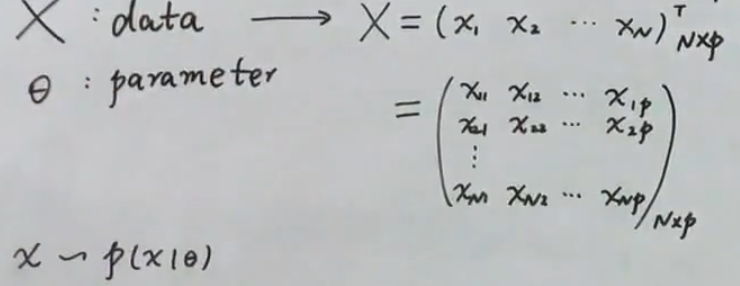 X : data ⟶ X = (x₁ x₂ ⋯ x_N)ᵀ_{N×p}
θ : parameter
= ( x₁₁ x₁₂ ⋯ x₁p
x₂₁ x₂₂ ⋯ x₂p
⋮
x_N1 x_N2 ⋯ x_Np )_{N×p}
x ∼ p(x|θ)